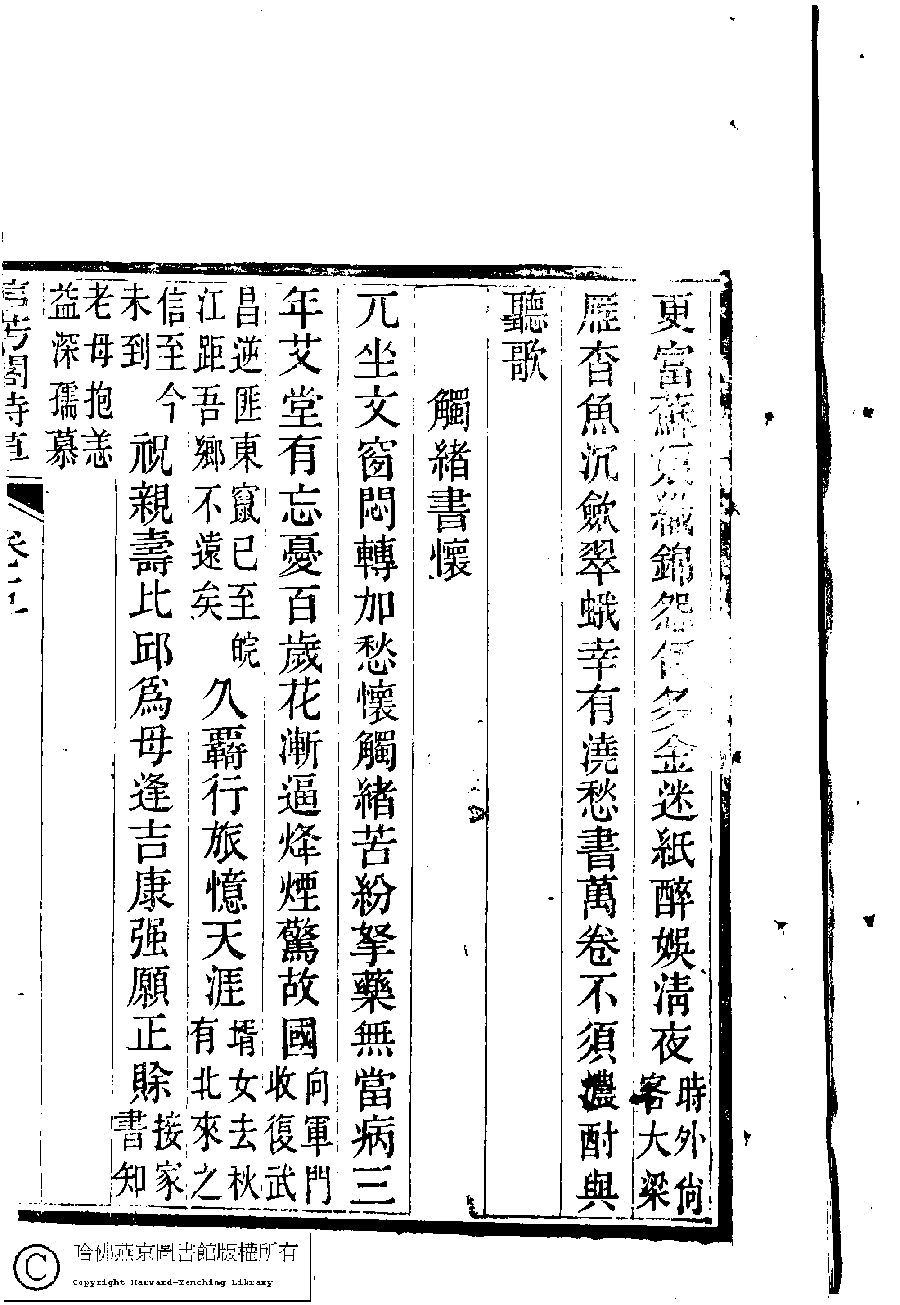 更富蘇家織錦怨何多金迷紙醉娛淸夜時外尙客大梁
雁杳魚沉歛翠蛾幸有澆愁書萬卷不須濃酎與
聽歌
觸緖書懷
兀坐文窗悶轉加愁懷觸緖苦紛拏藥無當病三
年艾堂有忘憂百歲花漸逼烽煙驚故國向軍門收復武
昌逆匪東竄已至皖江距吾鄉不遠矣久覊行旅憶天涯壻女去秋有北來之
信至今未到祝親壽比邱爲母逢吉康强願正賒接家書知
老母抱恙益深孺慕
信芳閣詩草
卷
哈佛燕京圖書館版權所有
Copyright Harvard-Yenching Library